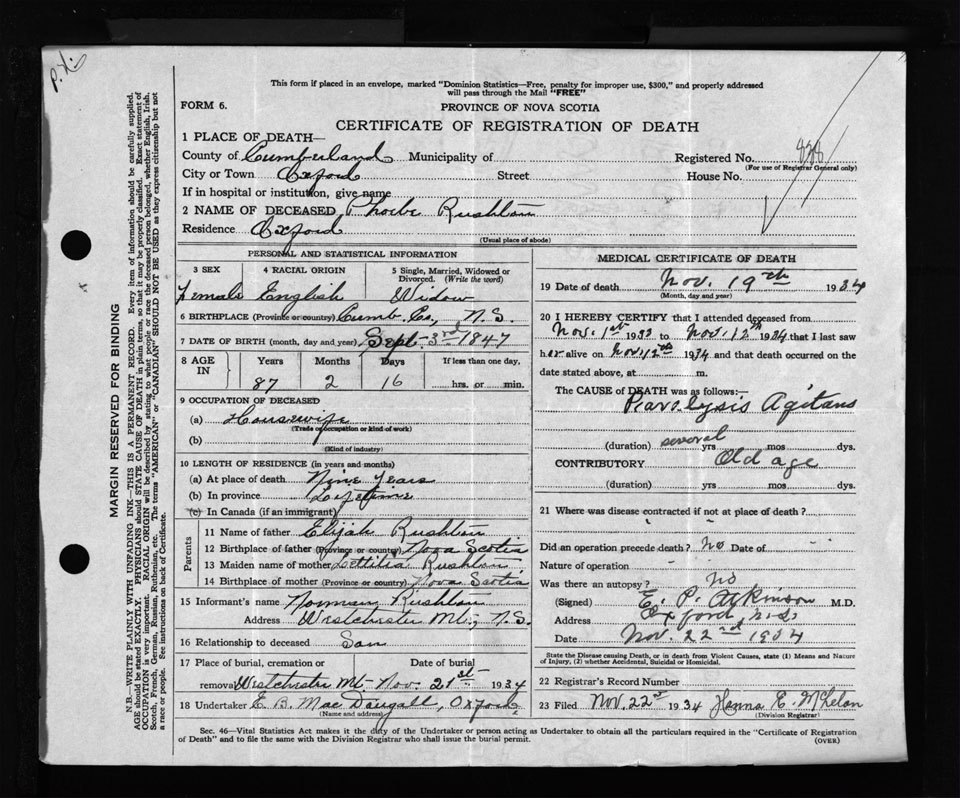 P.X.
This form if placed in an envelope, marked "Dominion Statistics—Free, penalty for improper use, $300," and properly addressed
will pass through the Mail "FREE"
FORM 6.
PROVINCE OF NOVA SCOTIA
CERTIFICATE OF REGISTRATION OF DEATH
1 PLACE OF DEATH—
County of Cumberland Municipality of Registered No. 828
(For use of Registrar General only)
City or Town Oxford Street House No.
If in hospital or institution, give name
2 NAME OF DECEASED Phoebe Rushton
Residence Oxford
(Usual place of abode)
PERSONAL AND STATISTICAL INFORMATION
3 SEX 4 RACIAL ORIGIN 5 Single, Married, Widowed or
Divorced. (Write the word)
Female English Widow
6 BIRTHPLACE (Province or country) Cumb. Co., N.S.
7 DATE OF BIRTH (month, day and year) Sept. 3rd 1847
8 AGE IN Years Months Days If less than one day,
87 2 16 hrs. or min.
9 OCCUPATION OF DECEASED
(a) Housewife
(Trade or occupation or kind of work)
(b)
(Kind of industry)
10 LENGTH OF RESIDENCE (in years and months)
(a) At place of death Nine Years
(b) In province Lifetime
(c) In Canada (if an immigrant)
Parents
11 Name of father Elijah Rushton
12 Birthplace of father (Province or country) Nova Scotia
13 Maiden name of mother Lettitia Rushton
14 Birthplace of mother (Province or country) Nova Scotia
15 Informant's name Norman Rushton
Address Westchester Mt., N.S.
16 Relationship to deceased Son
17 Place of burial, cremation or Date of burial
removal Westchester Mt. Nov. 21st 1934
18 Undertaker E. B. MacDougall, Oxford
(Name and address)
MEDICAL CERTIFICATE OF DEATH
19 Date of death Nov. 19th 1934
(Month, day and year)
20 I HEREBY CERTIFY that I attended deceased from
Nov. 1st 1933 to Nov. 12th 1934 that I last saw
her alive on Nov. 12th 1934 and that death occurred on the
date stated above, at m.
The CAUSE of DEATH was as follows:—
Paralysis Agitans
(duration) several yrs mos dys.
CONTRIBUTORY Old age
(duration) yrs mos dys.
21 Where was disease contracted if not at place of death?
Did an operation precede death? No Date of
Nature of operation
Was there an autopsy? No
(Signed) E. P. Atkinson M.D.
Address Oxford, N.S.
Date Nov. 22nd 1934
State the Disease causing Death, or in death from Violent Causes, state (1) Means and Nature
of Injury, (2) whether Accidental, Suicidal or Homicidal.
22 Registrar's Record Number
23 Filed Nov. 22nd 1934 Hanna E.
(Division Registrar)
Sec. 46—Vital Statistics Act makes it the duty of the Undertaker or person acting as Undertaker to obtain all the particulars required in the "Certificate of Registration
of Death" and to file the same with the Division Registrar who shall issue the burial permit.
(OVER)
MARGIN RESERVED FOR BINDING
N.B.—WRITE PLAINLY WITH UNFADING INK—THIS IS A PERMANENT RECORD. Every item of information should be carefully supplied.
AGE should be stated EXACTLY. PHYSICIANS should STATE CAUSE OF DEATH in plain terms, so that it may be properly classified. Exact statement of
OCCUPATION is very important. RACIAL ORIGIN will be described by stating to what people or race the deceased person belonged, whether English, Irish,
Scotch, French, German, Russian, Ruthenian, etc. The terms "AMERICAN" or "CANADIAN" SHOULD NOT BE USED as they express citizenship but not
a race or people. See instructions on back of Certificate.